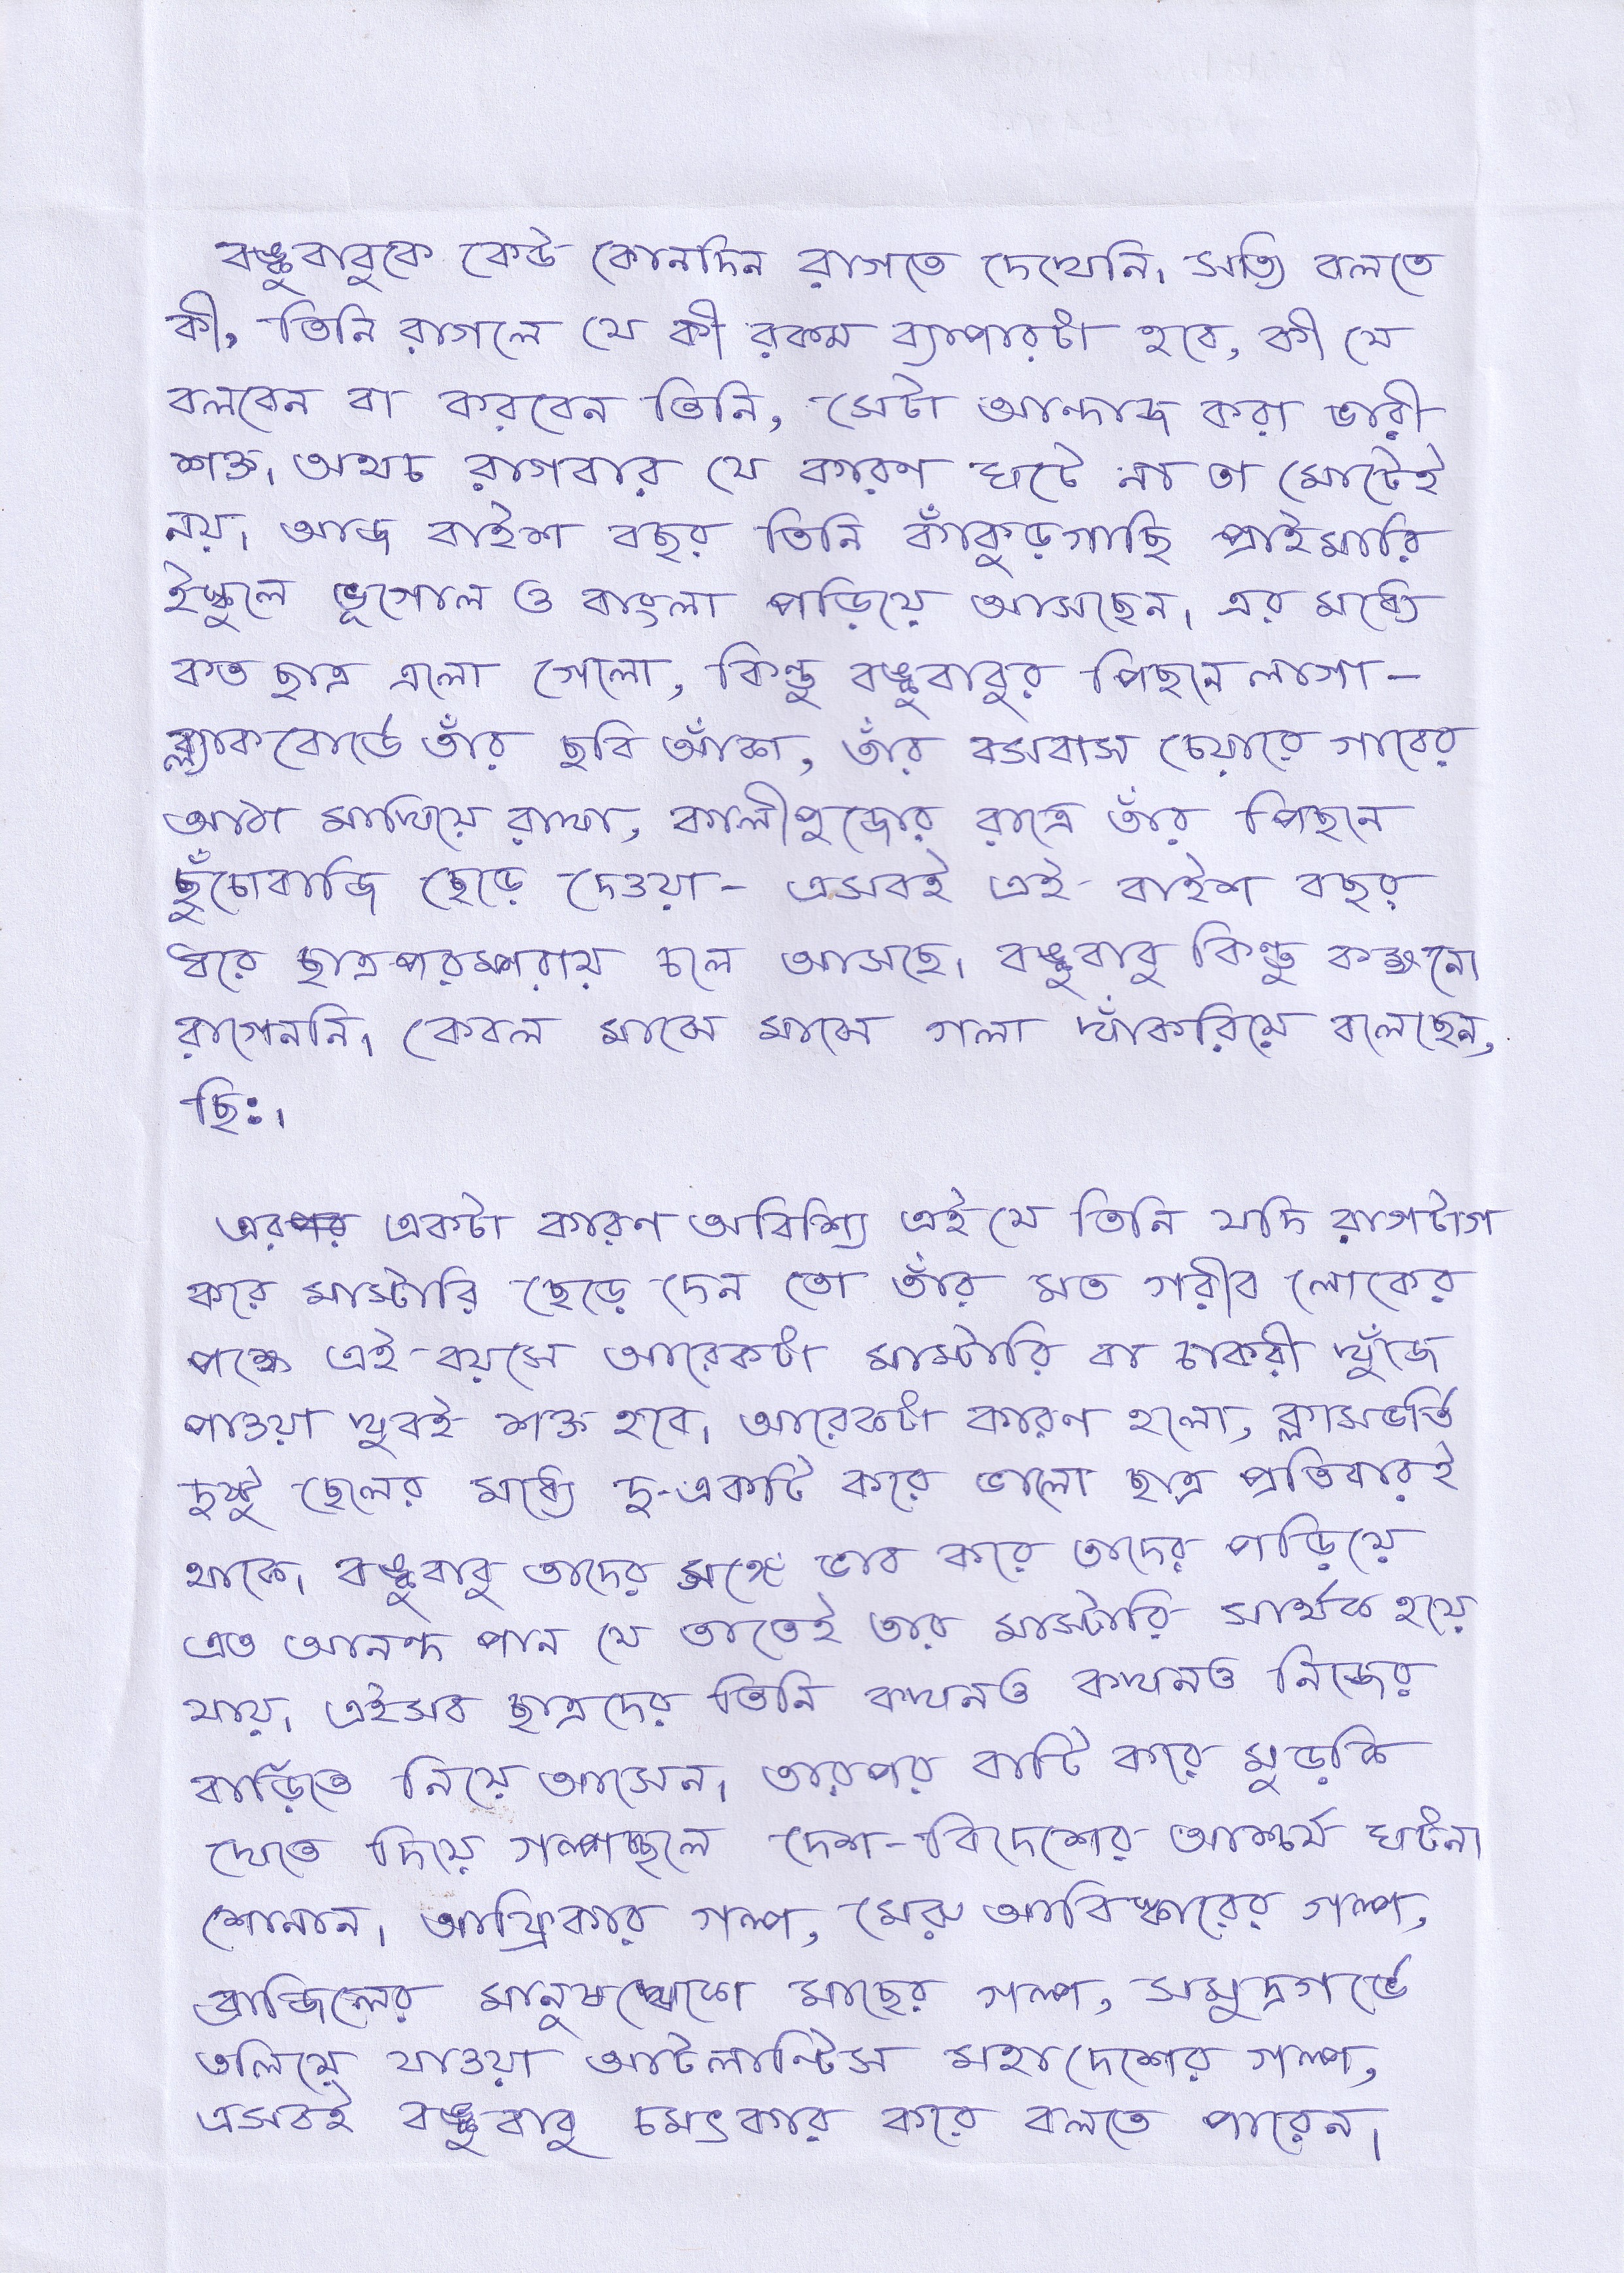 বঙ্কুবাবুকে কেউ কোনদিন রাগতে দেখেনি। সত্যি বলতে
কী, তিনি রাগলে যে কী রকম ব্যাপারটা হবে, কী যে
বলবেন বা করবেন তিনি, সেটা আন্দাজ করা ভারী
শক্ত। অথচ রাগবার যে কারণ ঘটে না তা মোটেই
নয়। আজ বাইশ বছর তিনি কাঁকুড়গাছি প্রাইমারি
ইস্কুলে ভূগোল ও বাংলা পড়িয়ে আসছেন। এর মধ্যে
কত ছাত্র এলো গেলো, কিন্তু বঙ্কুবাবুর পিছনে লাগা-
ব্ল্যাকবোর্ডে তাঁর ছবি আঁকা, তাঁর বসবাস চেয়ারে গাবের
আঠা মাখিয়ে রাখা, কালীপুজোর রাত্রে তাঁর পিছনে
ছুঁচোবাজি ছেড়ে দেওয়া- এসবই এই বাইশ বছর
ধরে ছাত্রপরম্পরায় চলে আসছে। বঙ্কুবাবু কিন্তু কক্ষনো
রাগেননি। কেবল মাঝে মাঝে গলা খাঁকরিয়ে বলেছেন,
ছিঃ।
এর একটা কারণ অবিশ্যি এই যে তিনি যদি রাগটাগ
করে মাস্টারি ছেড়ে দেন তো তাঁর মত গরীব লোকের
পক্ষে এই বয়সে আরেকটা মাস্টারি বা চাকরী খুঁজে
পাওয়া খুবই শক্ত হবে। আরেকটা কারণ হলো, ক্লাসভর্তি
দুষ্টু ছেলের মধ্যে দু-একটি করে ভালো ছাত্র প্রতিবারই
থাকে। বঙ্কুবাবু তাদের সঙ্গে ভাব করে তাদের পড়িয়ে
এত আনন্দ পান যে তাতেই তার মাস্টারি সার্থক হয়ে
যায়। এইসব ছাত্রদের তিনি কখনও কখনও নিজের
বাড়িতে নিয়ে আসেন। তারপর বাটি করে মুড়কি
খেতে দিয়ে গল্পচ্ছলে দেশ-বিদেশের আশ্চর্য ঘটনা
শোনান। আফ্রিকার গল্প, মেরু আবিস্কারের গল্প,
ব্রাজিলের মানুষখেকো মাছের গল্প, সমুদ্রগর্ভে
তলিয়ে যাওয়া আটলান্টিস মহাদেশের গল্প,
এসবই বঙ্কুবাবু চমৎকার করে বলতে পারেন।